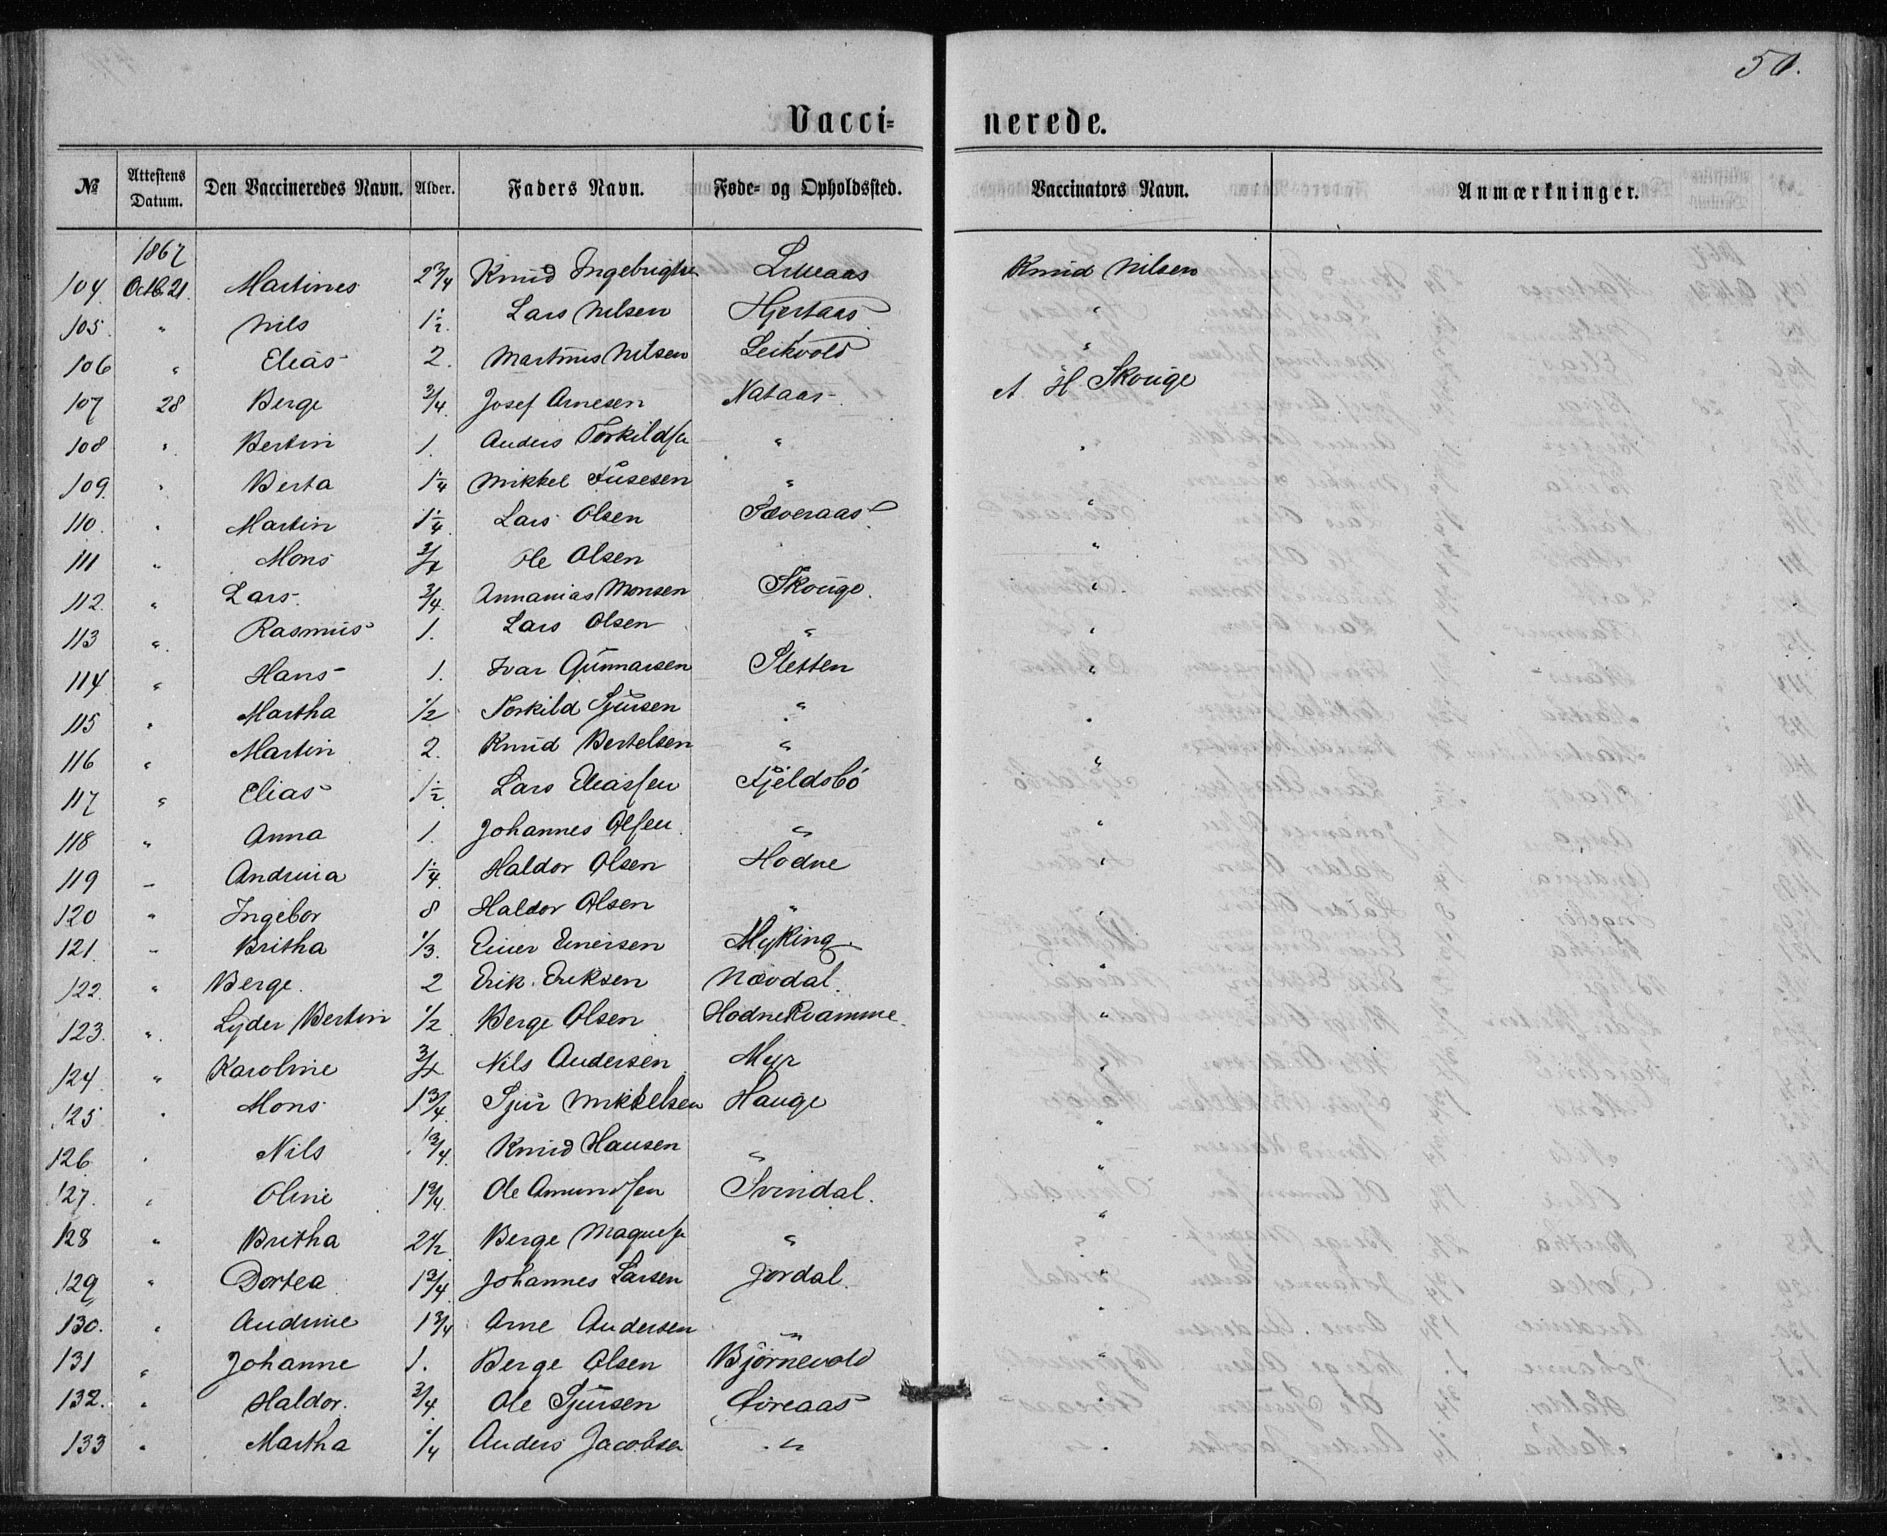 50.
Vacci- nerede.
№ Attestens Datum. Den Vaccineredes Navn. Alder. Faders Navn. Føde- og Opholdssted. Vaccinators Navn. Anmærkninger.
1867
104 Octb. 21. Martines 2 3/4 Knud Ingebrigtsen Lilleaas Knud Nilsen
105. " Nils 1 1/2. Lars Nilsen Hjertaas "
106 " Elias 2. Martinus Nilsen Leikvold "
107 28 Berge 3/4. Josef Arnesen Nataas A. H. Skouge
108 " Bertin 1. Anders Torkilds. " "
109. " Berta 1 1/4 Mikkel Fusesen "
110. " Martin 1 1/4. Lars Olsen Sæveraas "
111 " Mons 3/4 Ole Olsen "
112. " Lars. 3/4. Annanias Monsen Skouge. "
113 " Rasmus 1. Lars Olsen " "
114 " Hans 1. Ivar Gunnarsen Sletten "
115 " Martha 1/2 Torkild Sjursen " "
116 " Martin 2. Knud Bertelsen " "
117 " Elias 1 1/2 Lars Eliassen Fjeldsbö
118 " Anna 1. Johannes Olsen. " "
119 " Andrina 1 1/4. Haldor Olsen Hodne "
120 " Ingebor 8 Haldor Olsen " "
121. " Britha 1/3. Einer Einersen Myking
122. " Berge. 2 Erik Eriksen Nævdal. "
123. " Lyder Bertin 1/2 Berge Olsen HodneKvamme. "
124. " Karoline 3/4 Nils Andersen Myr
125. " Mons 1 3/4. Sjur Mikkelsen Hauge "
126. " Nils 1 3/4. Knud Hansen " "
127. " Oline 1 3/4. Ole Amundsen Svindal. "
128 " Britha 2 1/2. Berge Magnes. "
129 " Dortea 1 3/4. Johannes Larsen Jordal "
130. " Andrine 1 3/4 Arne Andersen " "
131 " Johanne 1. Berge Olsen Björnevold "
132. " Haldor. 3/4. Ole Sjursen "
133 " Martha 1/4 Anders Jacobsen " "